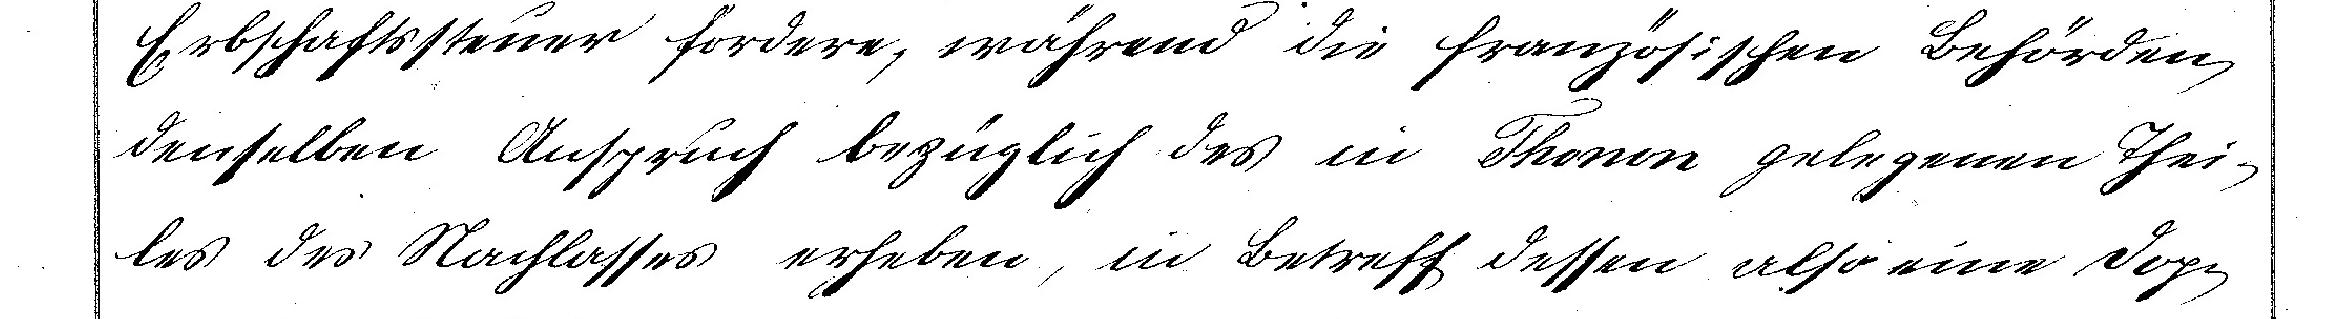 Erbschaftssteuer fordere, während die französischen Behörden
denselben Anspruch bezüglich des in Thonon gelegenen Thei-
les des Nachlasses erheben, in Betreff dessen also eine Dop-